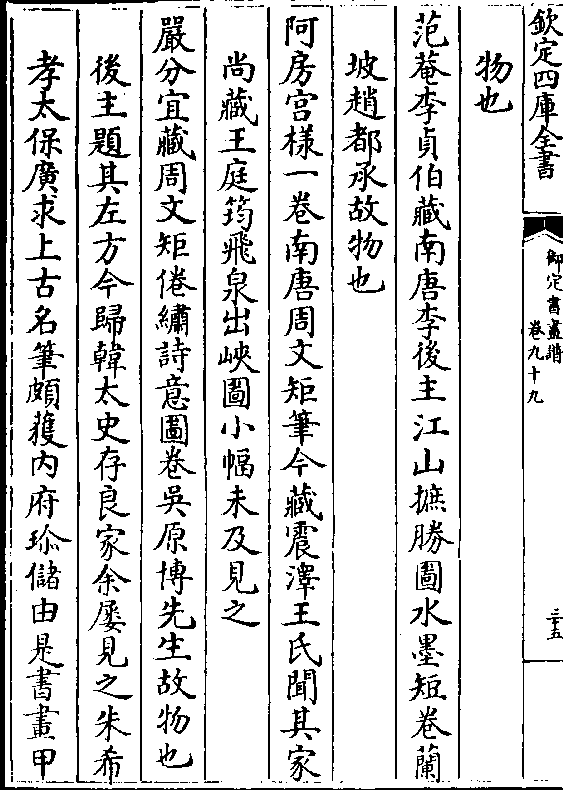 欽定四庫全書
御定書畫譜
卷九十九
三五
物也
范菴李貞伯藏南唐李後主江山摭勝圖水墨短卷蘭
坡趙都承故物也
阿房宫様一卷南唐周文矩筆今藏震澤王氏聞其家
尚藏王庭筠飛泉出峽圖小幅未及見之
嚴分宜藏周文矩倦繡詩意圖卷吳原博先生故物也
後主題其左方今歸韓太史存良家余屡見之朱希
孝太保廣求上古名筆頗獲内府珍儲由是書畫甲